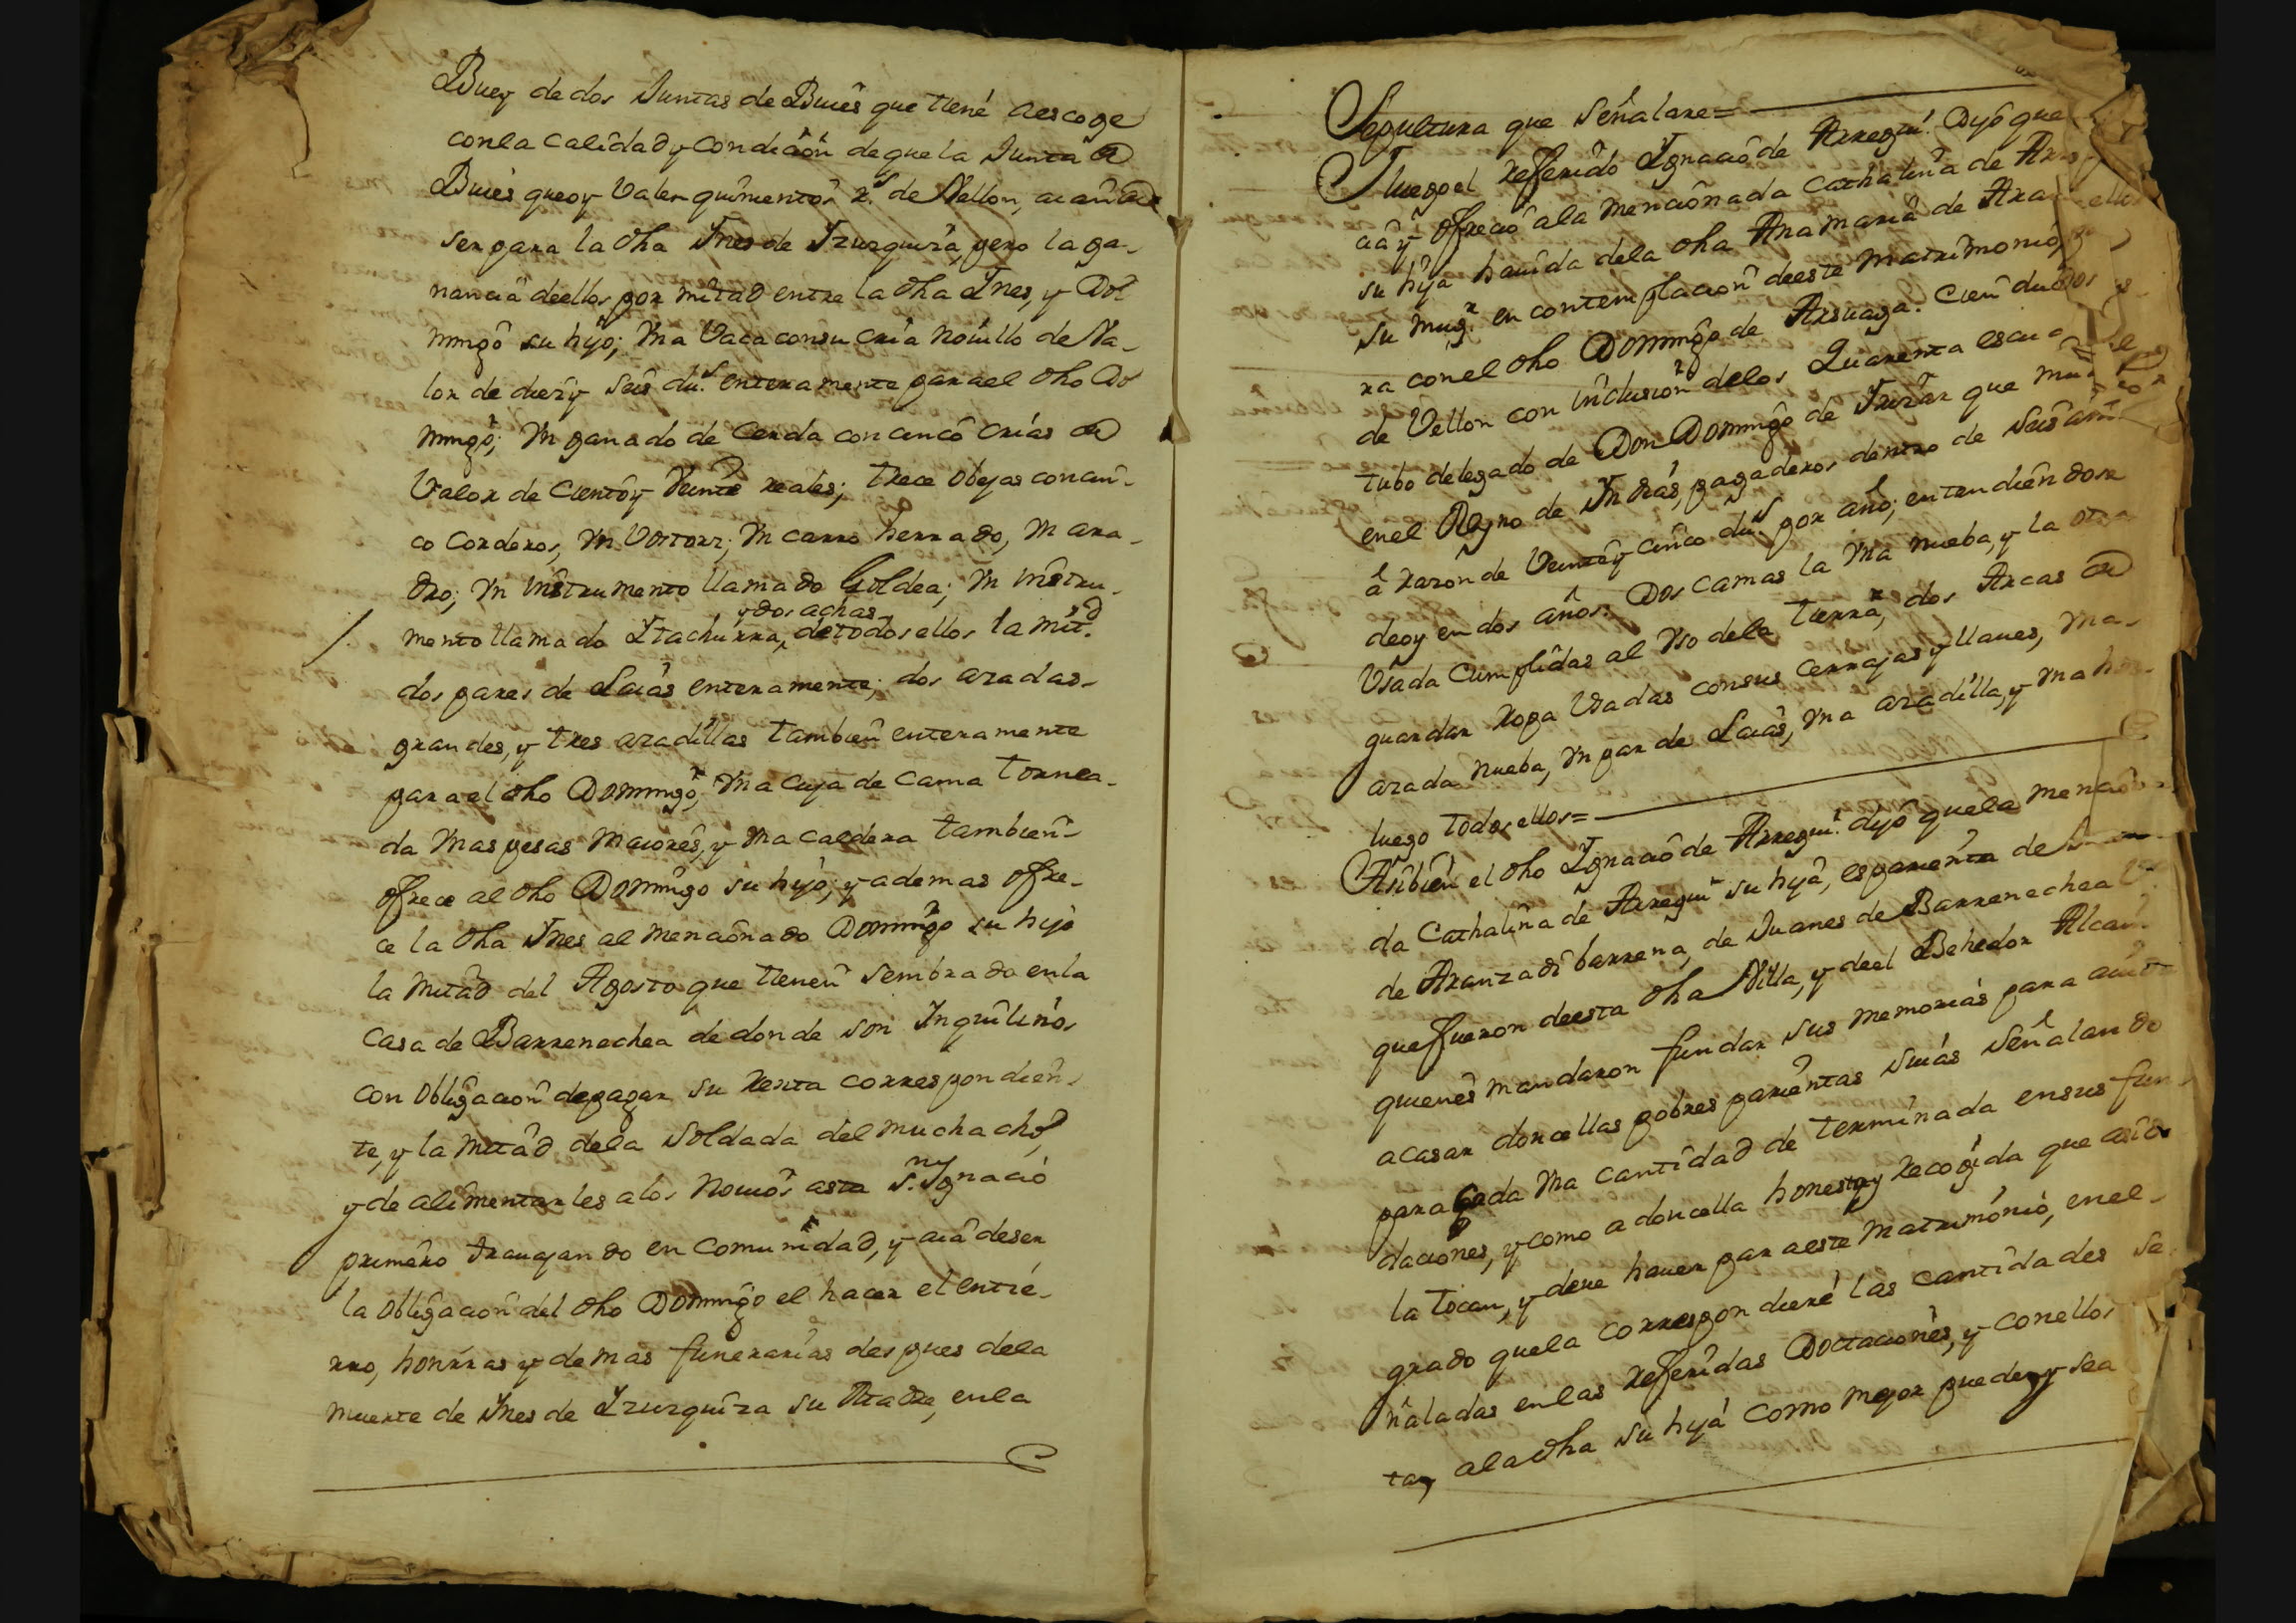 Buey de dos Juntas de Bueis que tiene a escoge
con la Calidad y condicion de que la Junta de
Bueis que oy valen quinientos r.s de Vellon, aian de
ser para la dha Ynes de Yzurquiza, pero la ga-
nancia de ellos por mitad entre la dha Ynes, y Do-
mingo su hijo; Vna Vaca con su cria Novillo de Va-
lor de diez y seis du.s enteramente para el dho Do
mingo; Vn ganado de Cerda con cinco crias de
Valor de Ciento y Veinte reales; trece obejas con cin-
co Corderos, Vn Vostortz; Vn carro herrado, Vn ara-
dro; Vn instrumento llamado Goldea; Vn instru-
y dos achas
mento llamado Ytachurra, de todos ellos la mit.d
dos pares de Laias enteramente; dos azadas
grandes, y tres azadillas tambien enteramente
para el dho Domingo, Vna Cuja de Cama tornea-
da Vnas pesas maiores, y Vna caldera tambien
ofrece al dho Domingo su hijo; y ademas ofre-
ce la dha Ynes al mencionado Domingo su hijo
la mitad del Agosto que tienen sembrado en la
Casa de Barrenechea de donde son Ynquilinos
con obligacion de pagar su renta correspondien-
te, y la mitad de la soldada del muchacho,
y de alimentarles a los Novios asta S.n Ygnacio
primero trauajando en comunidad, y aia de ser
la obligacion del dho Domingo el hacer el entie-
rro, honrras y demas funerarias despues de la
muerte de Ynes de Yzurquiza su Madre, en la
Sepultura que señalare=
Y luego el referido Ygnacio de Arregui dijo que
y ofrecio a la mencionada Cathalina de
su hija hauida de la dha Ana Maria de
su mug.r en contemplacion de este matrimonio,
ra con el dho Domingo de Arsuaga. Cien ducados
de Vellon con inclusion de los Quarenta
tubo de legado de Don Domingo de Yrizar que
en el Reyno de Yndias, pagaderos dentro de seis
a razon de Veinte y cinco du.s por año; entendiendose
de oy en dos años. Dos camas la Vna nueba, y la otra
Vsada Cumplidas al Vso de la tierra, dos Arcas de
guardar ropa Vsadas con sus cerrajas y llaues, Vna
azada nueba, Vn par de Laias, Vna azadilla, y Vna
luego todos ellos=
Asibien el dho Ygnacio de Arregui dijo que la menciona-
da Cathalina de Arregui su hija, es parienta de
de Aranzadi barrena, de Juanes de Barrenechea
que fueron de esta dha Villa, y de el Behedor
quienes mandaron fundar sus memorias para
a casar doncellas pobres parientas suias señalando
para cada Vna cantidad determinada en sus fun-
daciones, y como a doncella honesta y recogida que
la tocan, y deue hauer para este matrimonio, en el
grado que la correspondiere las cantidades se-
ñaladas en las referidas Doctaciones, y con ellos
a la dha su hija como mejor puede, y sea